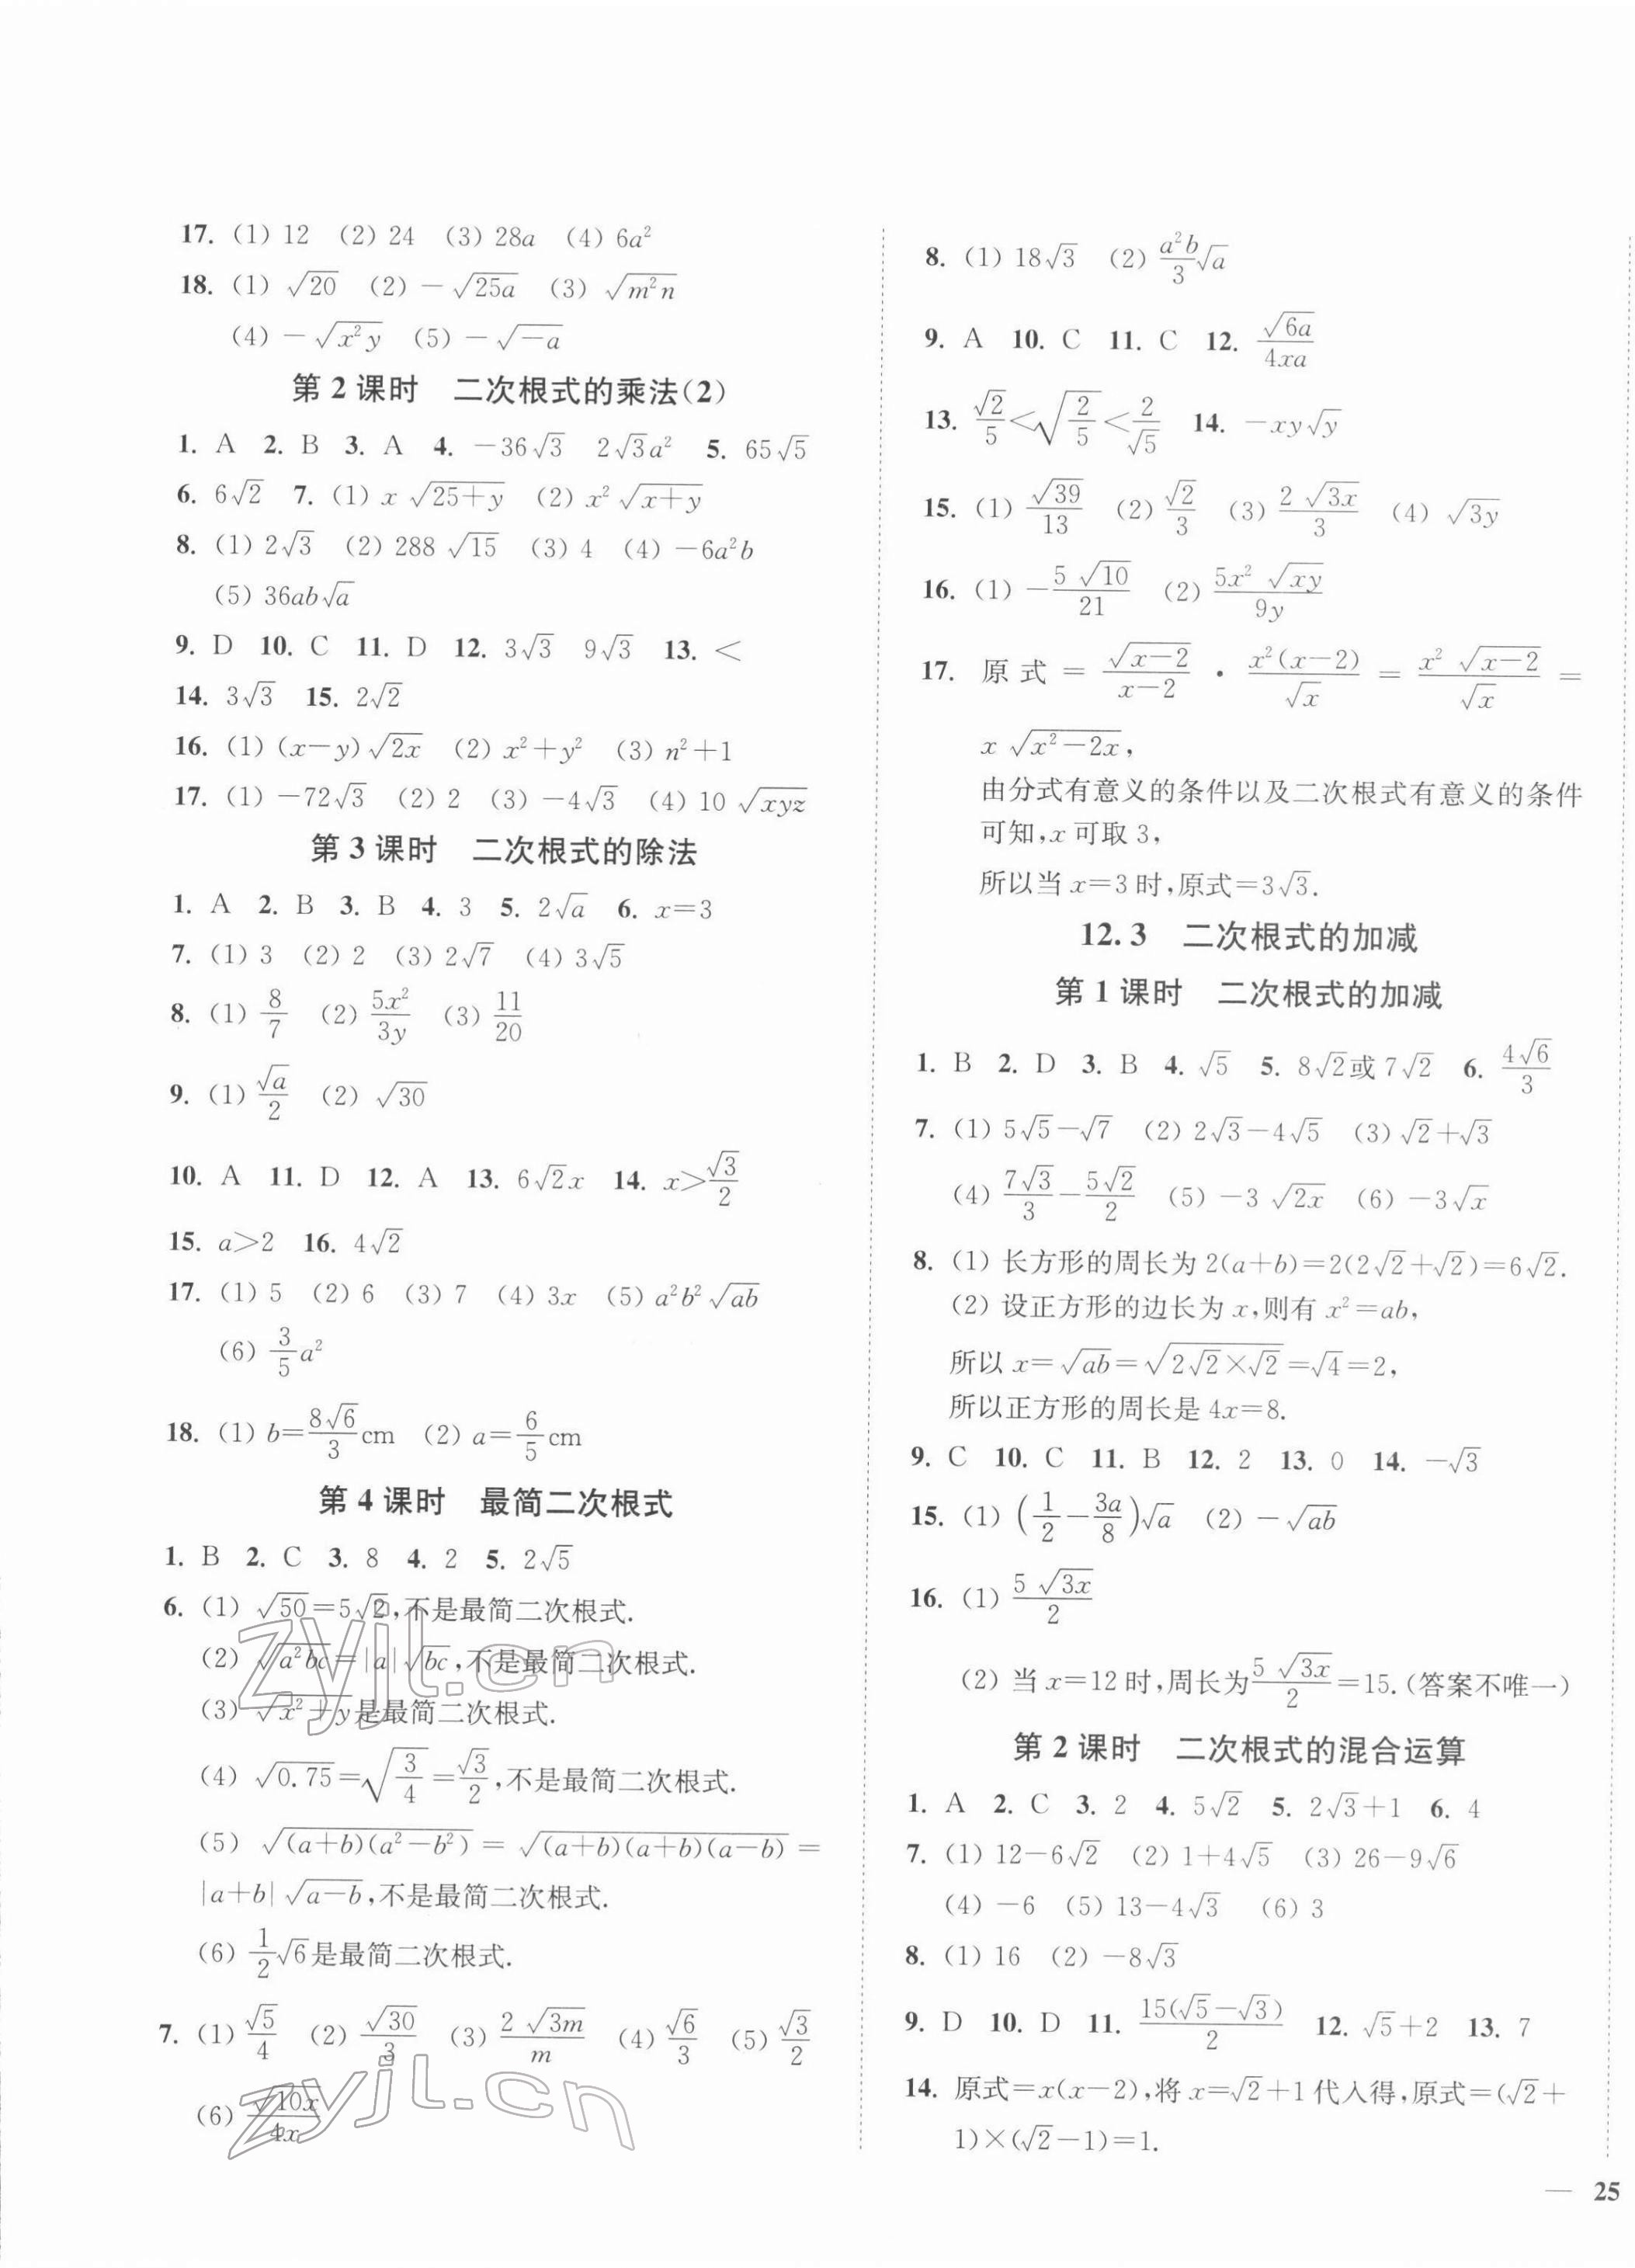 17. (1) 12 (2) 24 (3) 28a (4) 6a²
18. (1) √20 (2) −√(25a) (3) √(m²n)
(4) −√(x²y) (5) −√(−a)
第 2 课时 二次根式的乘法(2)
1. A 2. B 3. A 4. −36√3 2√3a² 5. 65√5
6. 6√2 7. (1) x√(25+y) (2) x²√(x+y)
8. (1) 2√3 (2) 288√15 (3) 4 (4) −6a²b
(5) 36ab√a
9. D 10. C 11. D 12. 3√3 9√3 13. <
14. 3√3 15. 2√2
16. (1) (x−y)√(2x) (2) x²+y² (3) n²+1
17. (1) −72√3 (2) 2 (3) −4√3 (4) 10√(xyz)
第 3 课时 二次根式的除法
1. A 2. B 3. B 4. 3 5. 2√a 6. x=3
7. (1) 3 (2) 2 (3) 2√7 (4) 3√5
8. (1) 8/7 (2) 5x²/3y (3) 11/20
9. (1) √a/2 (2) √30
10. A 11. D 12. A 13. 6√2x 14. x>√3/2
15. a>2 16. 4√2
17. (1) 5 (2) 6 (3) 7 (4) 3x (5) a²b²√(ab)
(6) 3/5 a²
18. (1) b=8√6/3 cm (2) a=6/5 cm
第 4 课时 最简二次根式
1. B 2. C 3. 8 4. 2 5. 2√5
6. (1) √50=5√2,不是最简二次根式.
(2) √(a²bc)=|a|√(bc),不是最简二次根式.
(3) √(x²+y)是最简二次根式.
(4) √0.75=√(3/4)=√3/2,不是最简二次根式.
(5) √((a+b)(a²−b²))=√((a+b)(a+b)(a−b))=
|a+b|√(a−b),不是最简二次根式.
(6) 1/2√6是最简二次根式.
7. (1) √5/4 (2) √30/3 (3) 2√(3m)/m (4) √6/3 (5) √3/2
(6) √(10x)/4x
8. (1) 18√3 (2) a²b/3 √a
9. A 10. C 11. C 12. √(6a)/4xa
13. √2/5<√(2/5)<2/√5 14. −xy√y
15. (1) √39/13 (2) √2/3 (3) 2√(3x)/3 (4) √(3y)
16. (1) −5√10/21 (2) 5x²√(xy)/9y
17. 原式=√(x−2)/(x−2)·x²(x−2)/√x=x²√(x−2)/√x=
x√(x²−2x),
由分式有意义的条件以及二次根式有意义的条件
可知,x可取 3,
所以当 x=3 时,原式=3√3.
12.3 二次根式的加减
第 1 课时 二次根式的加减
1. B 2. D 3. B 4. √5 5. 8√2或 7√2 6. 4√6/3
7. (1) 5√5−√7 (2) 2√3−4√5 (3) √2+√3
(4) 7√3/3−5√2/2 (5) −3√(2x) (6) −3√x
8. (1) 长方形的周长为 2(a+b)=2(2√2+√2)=6√2.
(2) 设正方形的边长为 x,则有 x²=ab,
所以 x=√(ab)=√(2√2×√2)=√4=2,
所以正方形的周长是 4x=8.
9. C 10. C 11. B 12. 2 13. 0 14. −√3
15. (1) (1/2−3a/8)√a (2) −√(ab)
16. (1) 5√(3x)/2
(2) 当 x=12 时,周长为5√(3x)/2=15.(答案不唯一)
第 2 课时 二次根式的混合运算
1. A 2. C 3. 2 4. 5√2 5. 2√3+1 6. 4
7. (1) 12−6√2 (2) 1+4√5 (3) 26−9√6
(4) −6 (5) 13−4√3 (6) 3
8. (1) 16 (2) −8√3
9. D 10. D 11. 15(√5−√3)/2 12. √5+2 13. 7
14. 原式=x(x−2),将 x=√2+1 代入得,原式=(√2+
1)×(√2−1)=1.
— 25
zyjl.cn
zyjl.cn